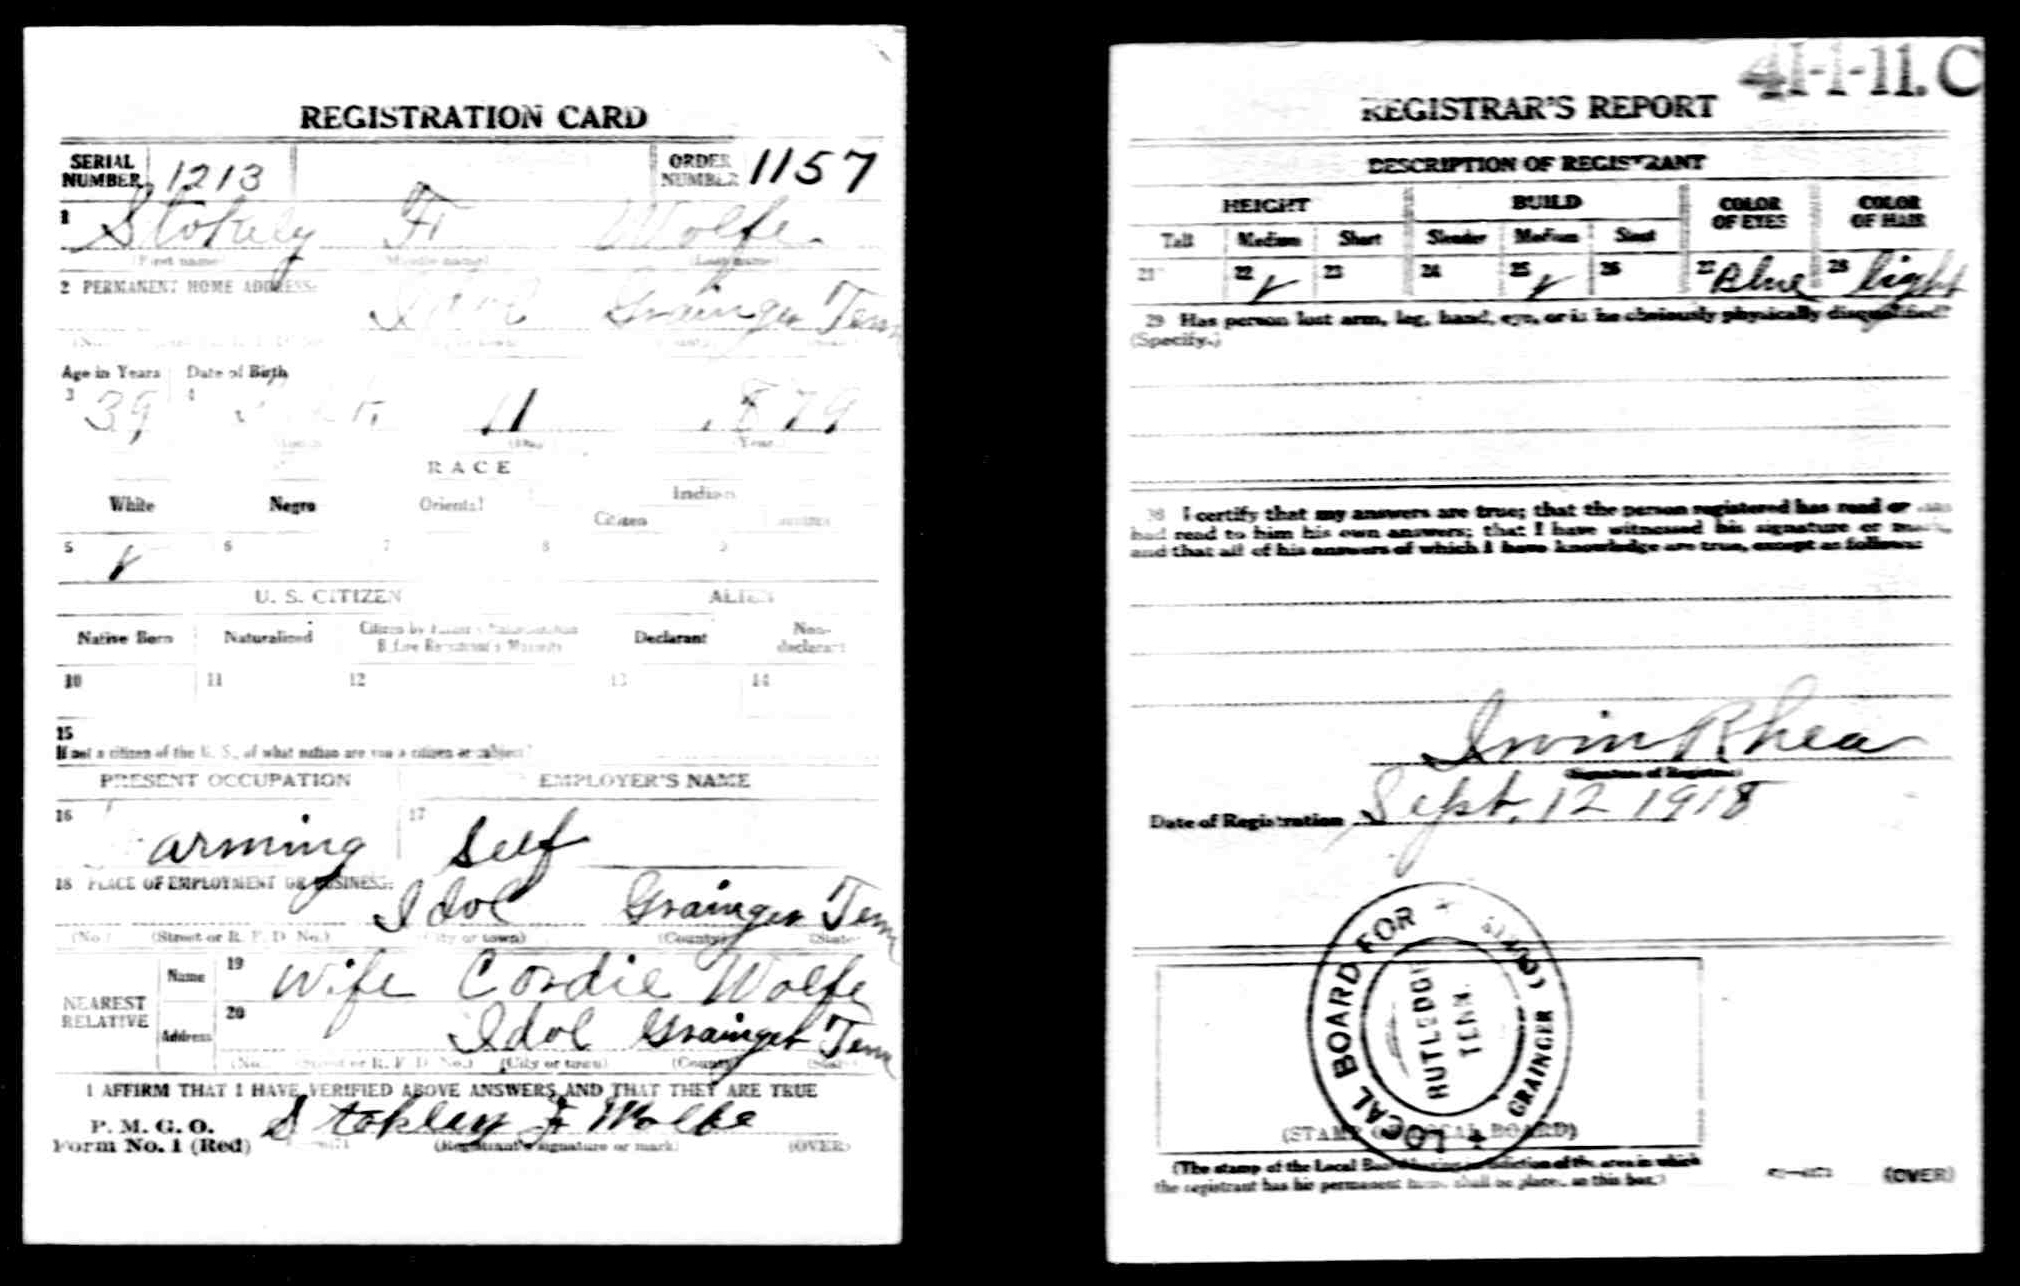 REGISTRATION CARD
SERIAL NUMBER 1213 ORDER NUMBER 1157
1 Stokely F Wolfe
(First name) (Middle name) (Last name)
2 PERMANENT HOME ADDRESS:
Idol Grainger Tenn
Age in Years Date of Birth
3 39 4 11 1879
(Day) (Year)
RACE
White Negro Oriental Indian
Citizen
5 6 7 8 9
U. S. CITIZEN ALIEN
Native Born Naturalized Citizen by Father's Naturalization Before Registrant's Majority Declarant Non-declarant
10 11 12 13 14
15
If not a citizen of the U. S., of what nation are you a citizen or subject?
PRESENT OCCUPATION EMPLOYER'S NAME
16 Farming 17 Self
18 PLACE OF EMPLOYMENT OR BUSINESS:
Idol Grainger Tenn
(No.) (Street or R. F. D. No.) (City or town) (County) (State)
NEAREST RELATIVE
Name 19 Wife Cordie Wolfe
Address 20 Idol Grainger Tenn
(No.) (Street or R. F. D. No.) (City or town) (County) (State)
I AFFIRM THAT I HAVE VERIFIED ABOVE ANSWERS AND THAT THEY ARE TRUE
P. M. G. O.
Form No. 1 (Red) Stokley F Wolfe
(Registrant's signature or mark) (OVER)
41-1-11. C
REGISTRAR'S REPORT
DESCRIPTION OF REGISTRANT
HEIGHT BUILD COLOR OF EYES COLOR OF HAIR
Tall Medium Short Slender Medium Stout
21 22 23 24 25 26 27 Blue 28 light
29 Has person lost arm, leg, hand, eye, or is he obviously physically disqualified?
(Specify.)
30 I certify that my answers are true; that the person registered has read or has
had read to him his own answers; that I have witnessed his signature or mark,
and that all of his answers of which I have knowledge are true, except as follows:
Irvin Rhea
(Signature of Registrar)
Date of Registration Sept. 12 1918
LOCAL BOARD FOR GRAINGER COUNTY
RUTLEDGE
TENN.
(STAMP OF LOCAL BOARD)
(The stamp of the Local Board having jurisdiction of the area in which
the registrant has his permanent home shall be placed in this box.)
(OVER)